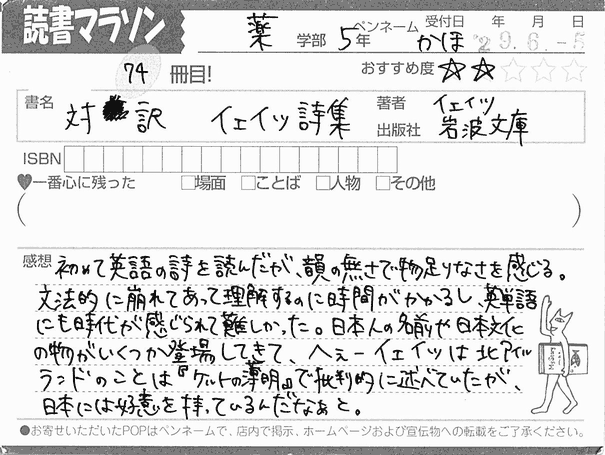 読書マラソン
薬 学部 5年 ペンネーム かほ 受付日 年 月 日
29.6.-5
74 冊目! おすすめ度 ★★☆☆☆
書名 対訳 イェイツ詩集 著者 イェイツ
出版社 岩波文庫
ISBN
♥一番心に残った □場面 □ことば □人物 □その他
( )
感想 初めて英語の詩を読んだが、韻の無さで物足りなさを感じる。
文法的に崩れてあって理解するのに時間がかかるし、英単語
にも時代が感じられて難しかった。日本人の名前や日本文化
の物がいくつか登場してきて、へぇーイェイツは北アイル
ランドのことは『ケルトの薄明』で批判的に述べていたが、
日本には好意を持っているんだなぁと。
●お寄せいただいたPOPはペンネームで、店内で掲示、ホームページおよび宣伝物への転載をご了承ください。